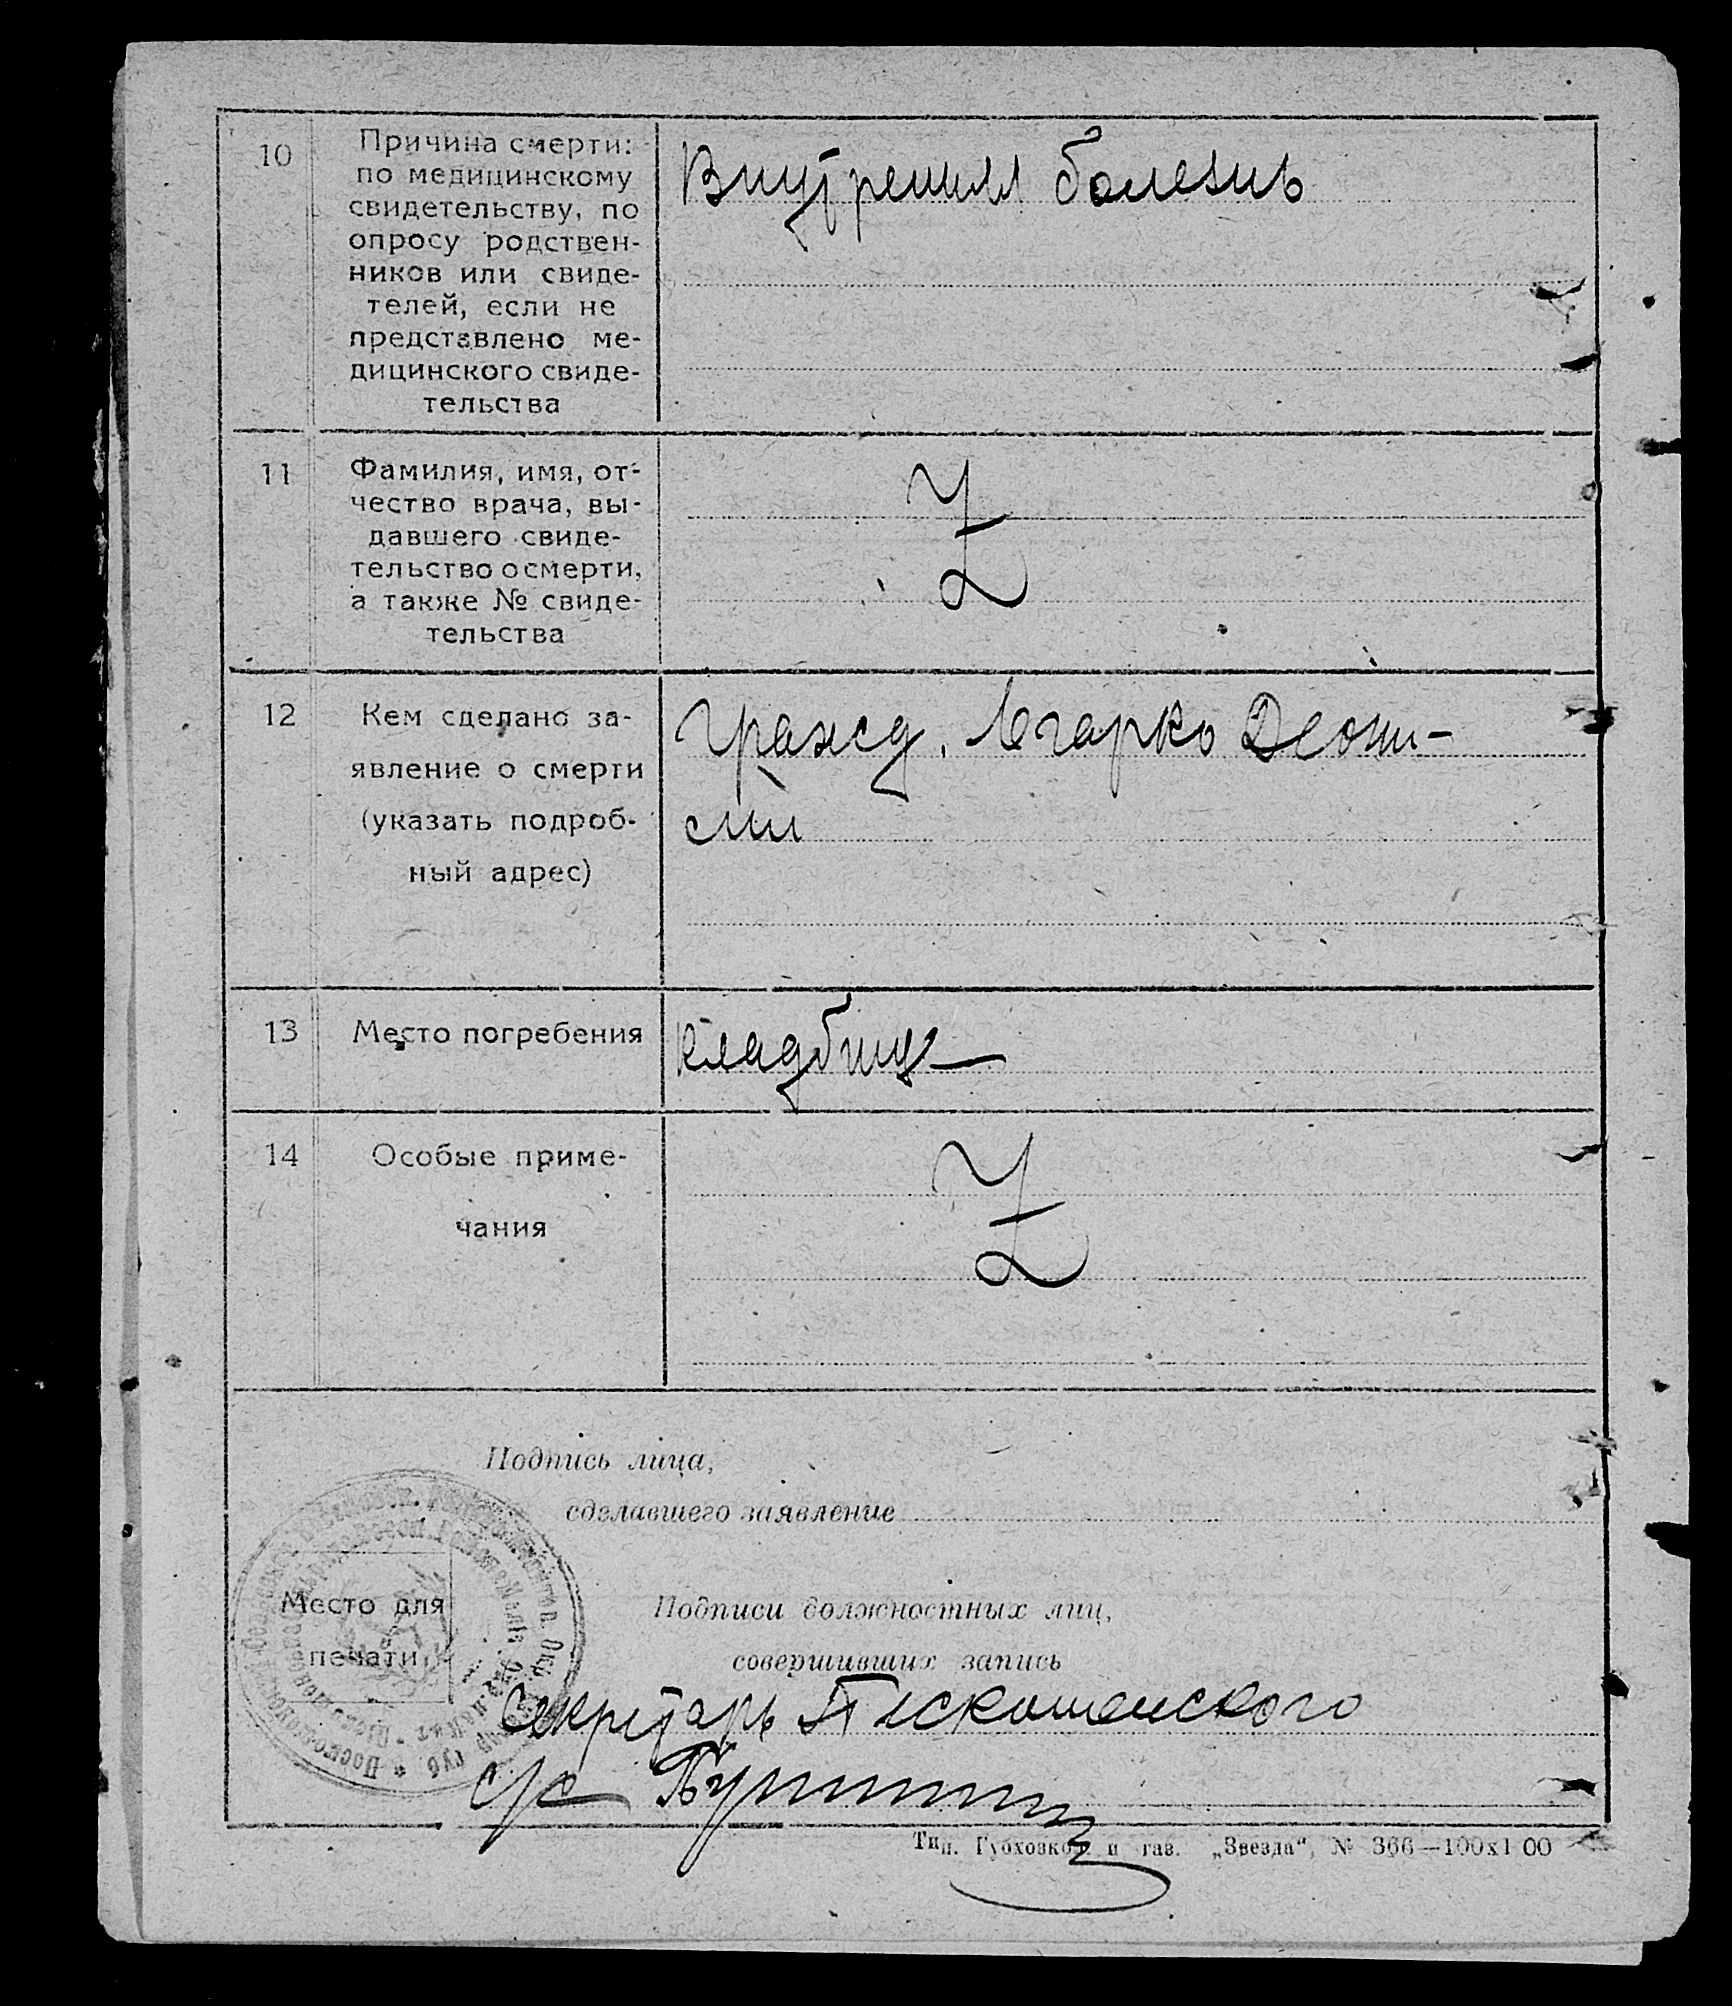 10
Причина смерти:
по медицинскому
свидетельству, по
опросу родствен-
ников или свиде-
телей, если не
представлено ме-
дицинского свиде-
тельства
Внутренняя болезнь
11
Фамилия, имя, от-
чество врача, вы-
давшего свиде-
тельство о смерти,
а также № свиде-
тельства
Z
12
Кем сделано за-
явление о смерти
(указать подроб-
ный адрес)
Гражд.
13
Место погребения
кладбище
14
Особые приме-
чания
Z
Подпись лица,
сделавшего заявление
Место для
печати
Подписи должностных лиц,
совершивших запись
Секретарь
с/с
Тип. Губхозком и газ. „Звезда“, № 366—100х1 00